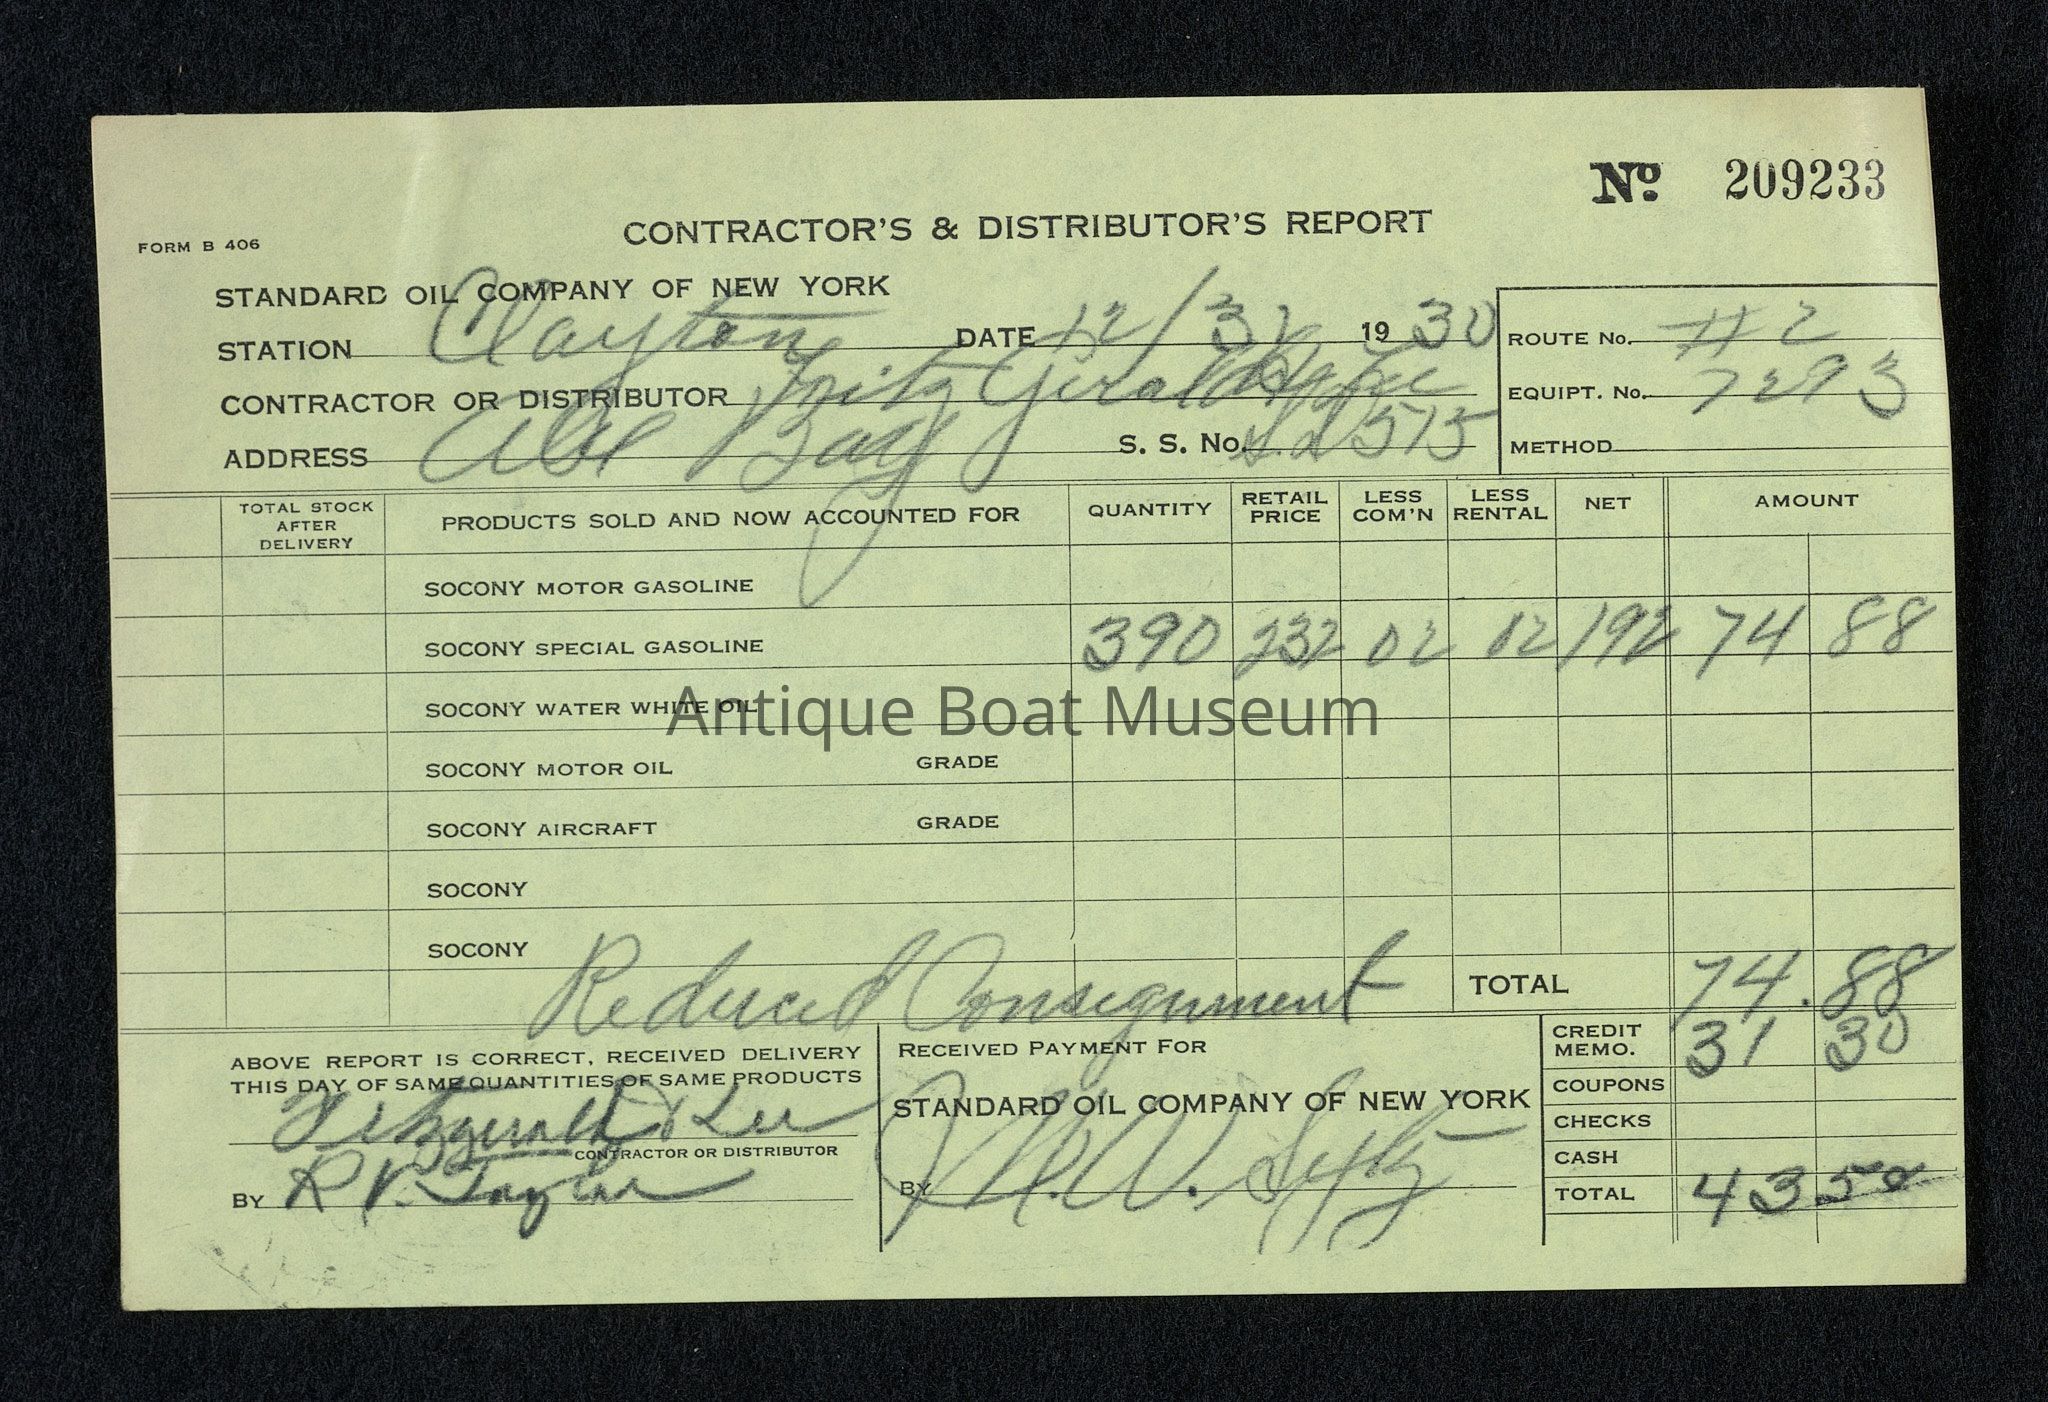 No. 209233
CONTRACTOR'S & DISTRIBUTOR'S REPORT
FORM B 406
STANDARD OIL COMPANY OF NEW YORK
STATION Clayton DATE 12/31 1930 ROUTE No. #2
CONTRACTOR OR DISTRIBUTOR Fritz Gerald & Lee EQUIPT. No. 7293
ADDRESS Alex Bay S. S. No. 2515 METHOD
TOTAL STOCK AFTER DELIVERY PRODUCTS SOLD AND NOW ACCOUNTED FOR QUANTITY RETAIL PRICE LESS COM'N LESS RENTAL NET AMOUNT
SOCONY MOTOR GASOLINE
SOCONY SPECIAL GASOLINE 390 232 02 02 192 74 88
SOCONY WATER WHITE OIL
Antique Boat Museum
SOCONY MOTOR OIL GRADE
SOCONY AIRCRAFT GRADE
SOCONY
SOCONY
Reduced Consignment TOTAL 74.88
ABOVE REPORT IS CORRECT, RECEIVED DELIVERY
THIS DAY OF SAME QUANTITIES OF SAME PRODUCTS
Fitzgerald & Lee
CONTRACTOR OR DISTRIBUTOR
BY R V. Taylor
RECEIVED PAYMENT FOR
STANDARD OIL COMPANY OF NEW YORK
BY H. W.
CREDIT MEMO. 31 30
COUPONS
CHECKS
CASH
TOTAL 43 58